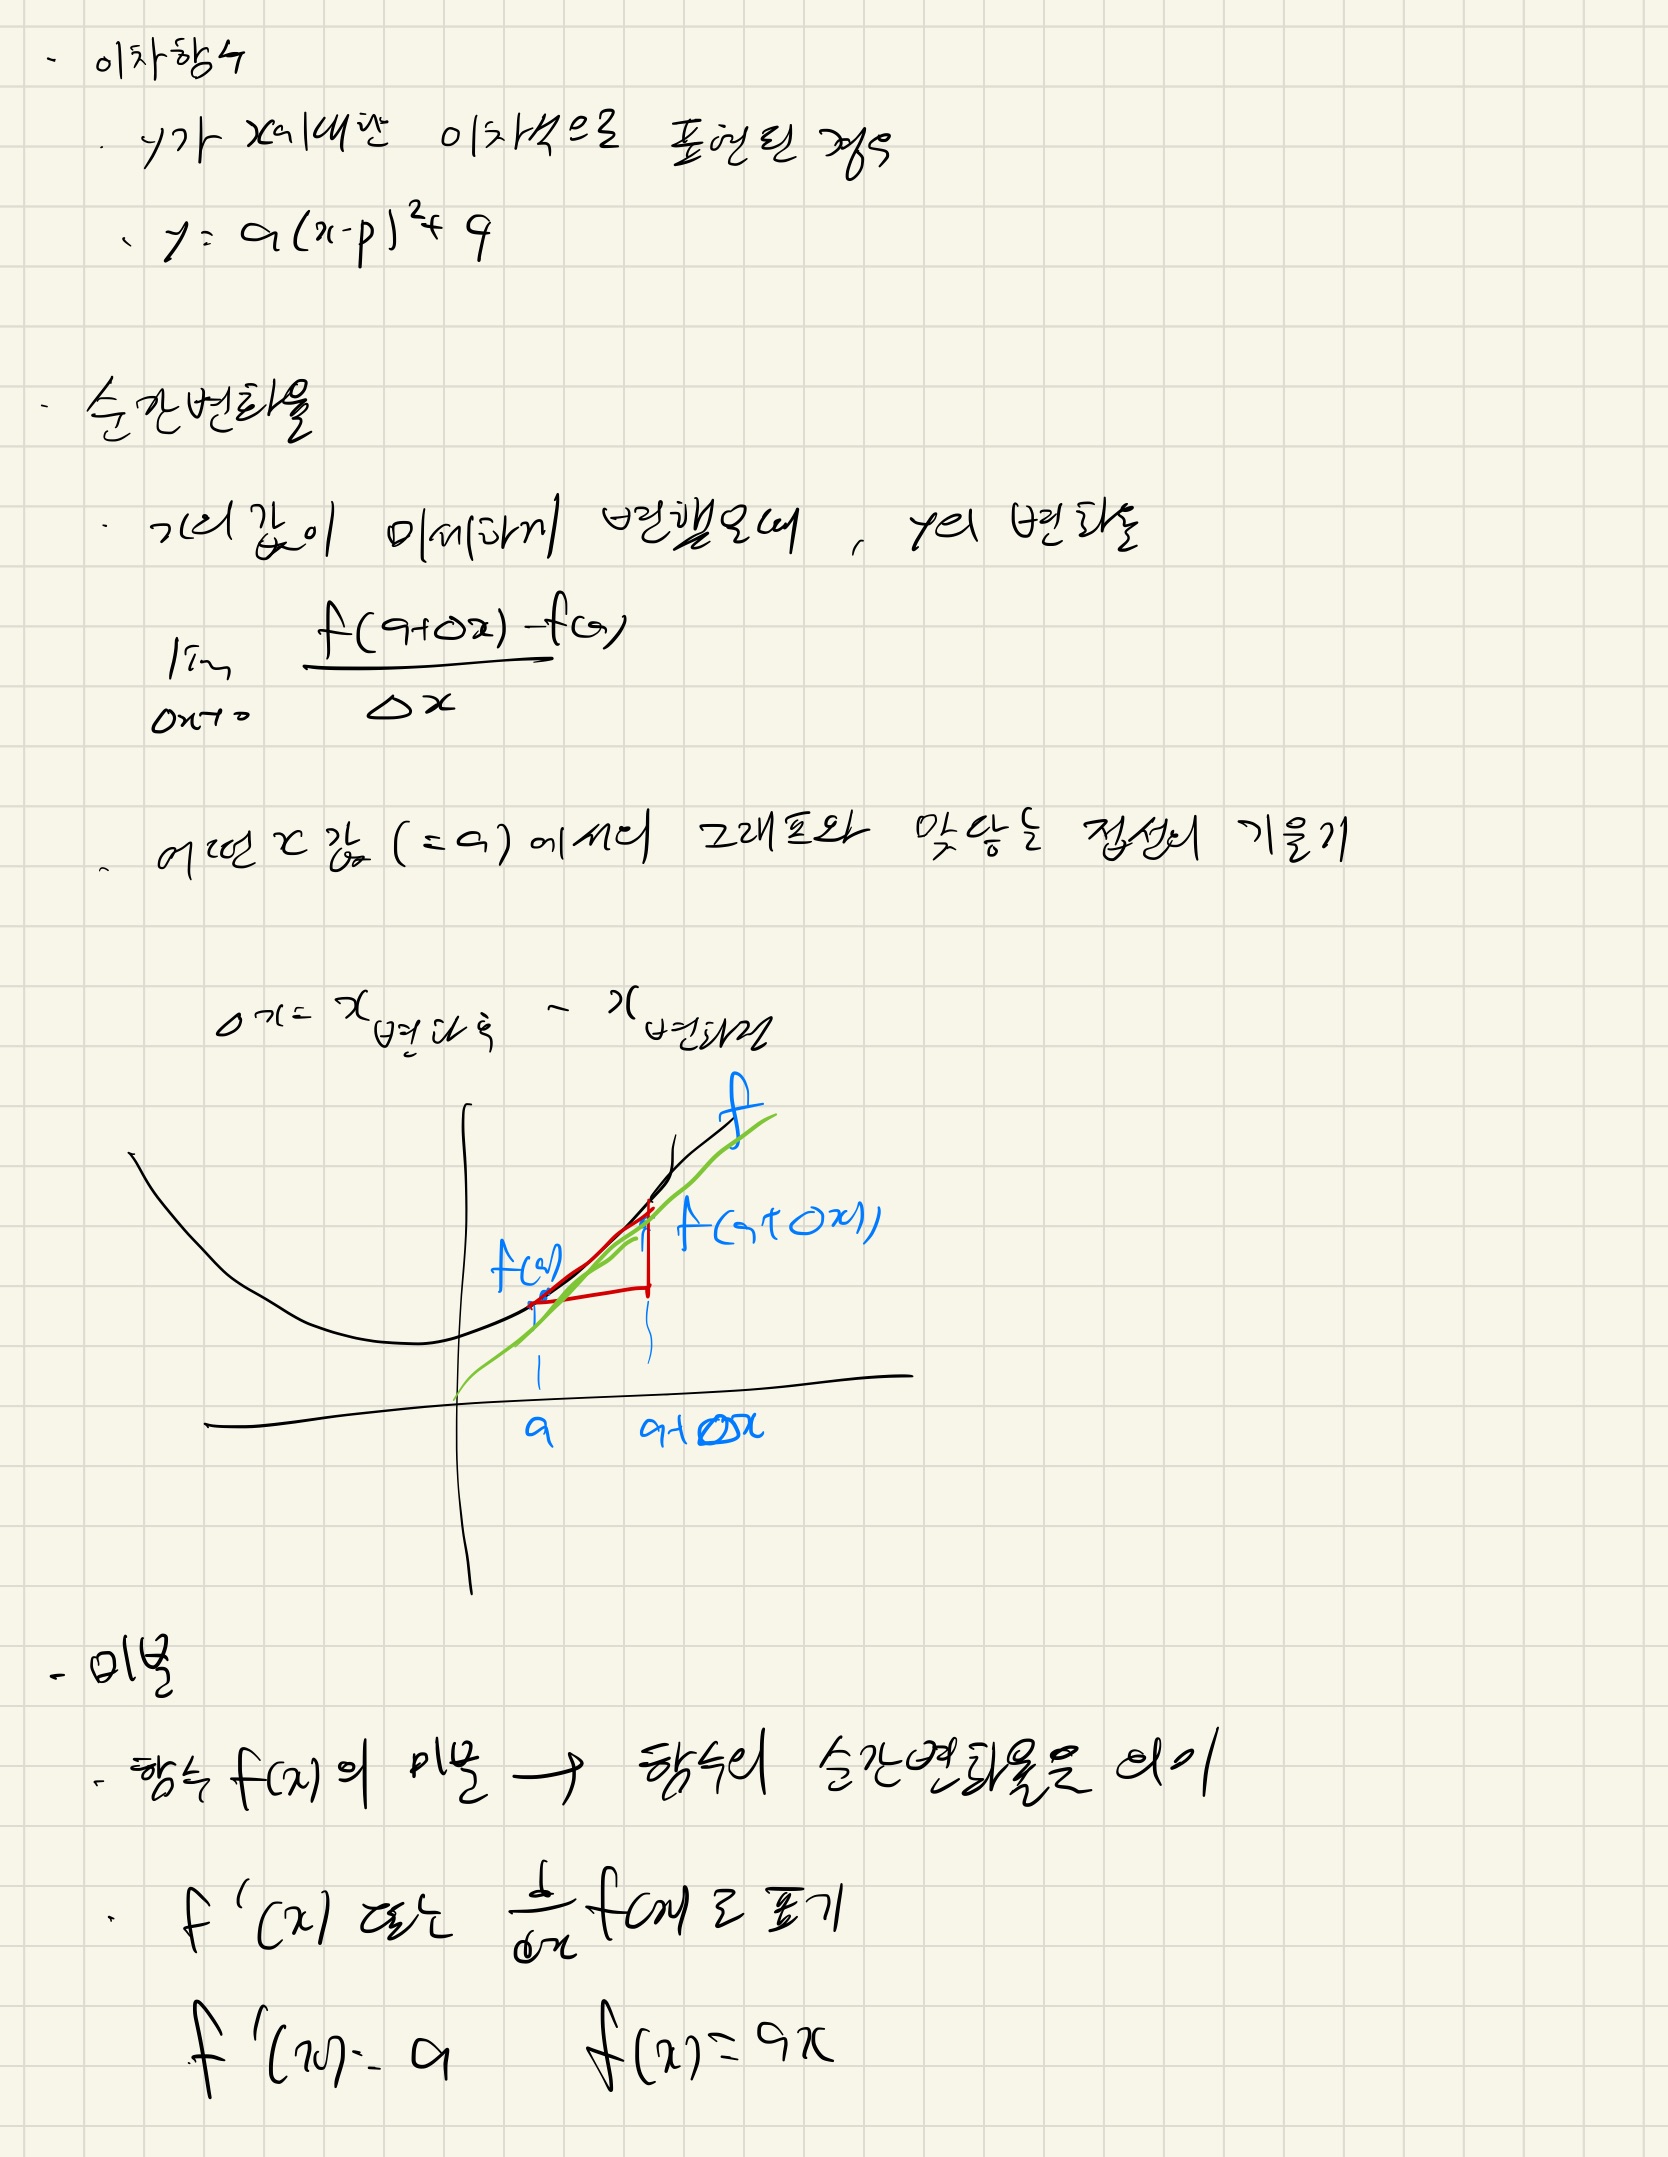 - 이차함수
· y가 x에대한 이차식으로 표현된 경우
· y = a(x-p)²+ q
- 순간변화율
· x의 값이 미세하게 변했을때, y의 변화율
lim Δx→0 f(a+Δx) - f(a) / Δx
· 어떤 x값 (=a)에서의 그래프와 맞닿는 접선의 기울기
Δx = x변화후 - x변화전
f
f(a+Δx)
f(a)
a a+Δx
- 미분
· 함수 f(x)의 미분 → 함수의 순간변화율을 의미
· f'(x) 또는 d/dx f(x)로 표기
f'(x) = a f(x) = ax